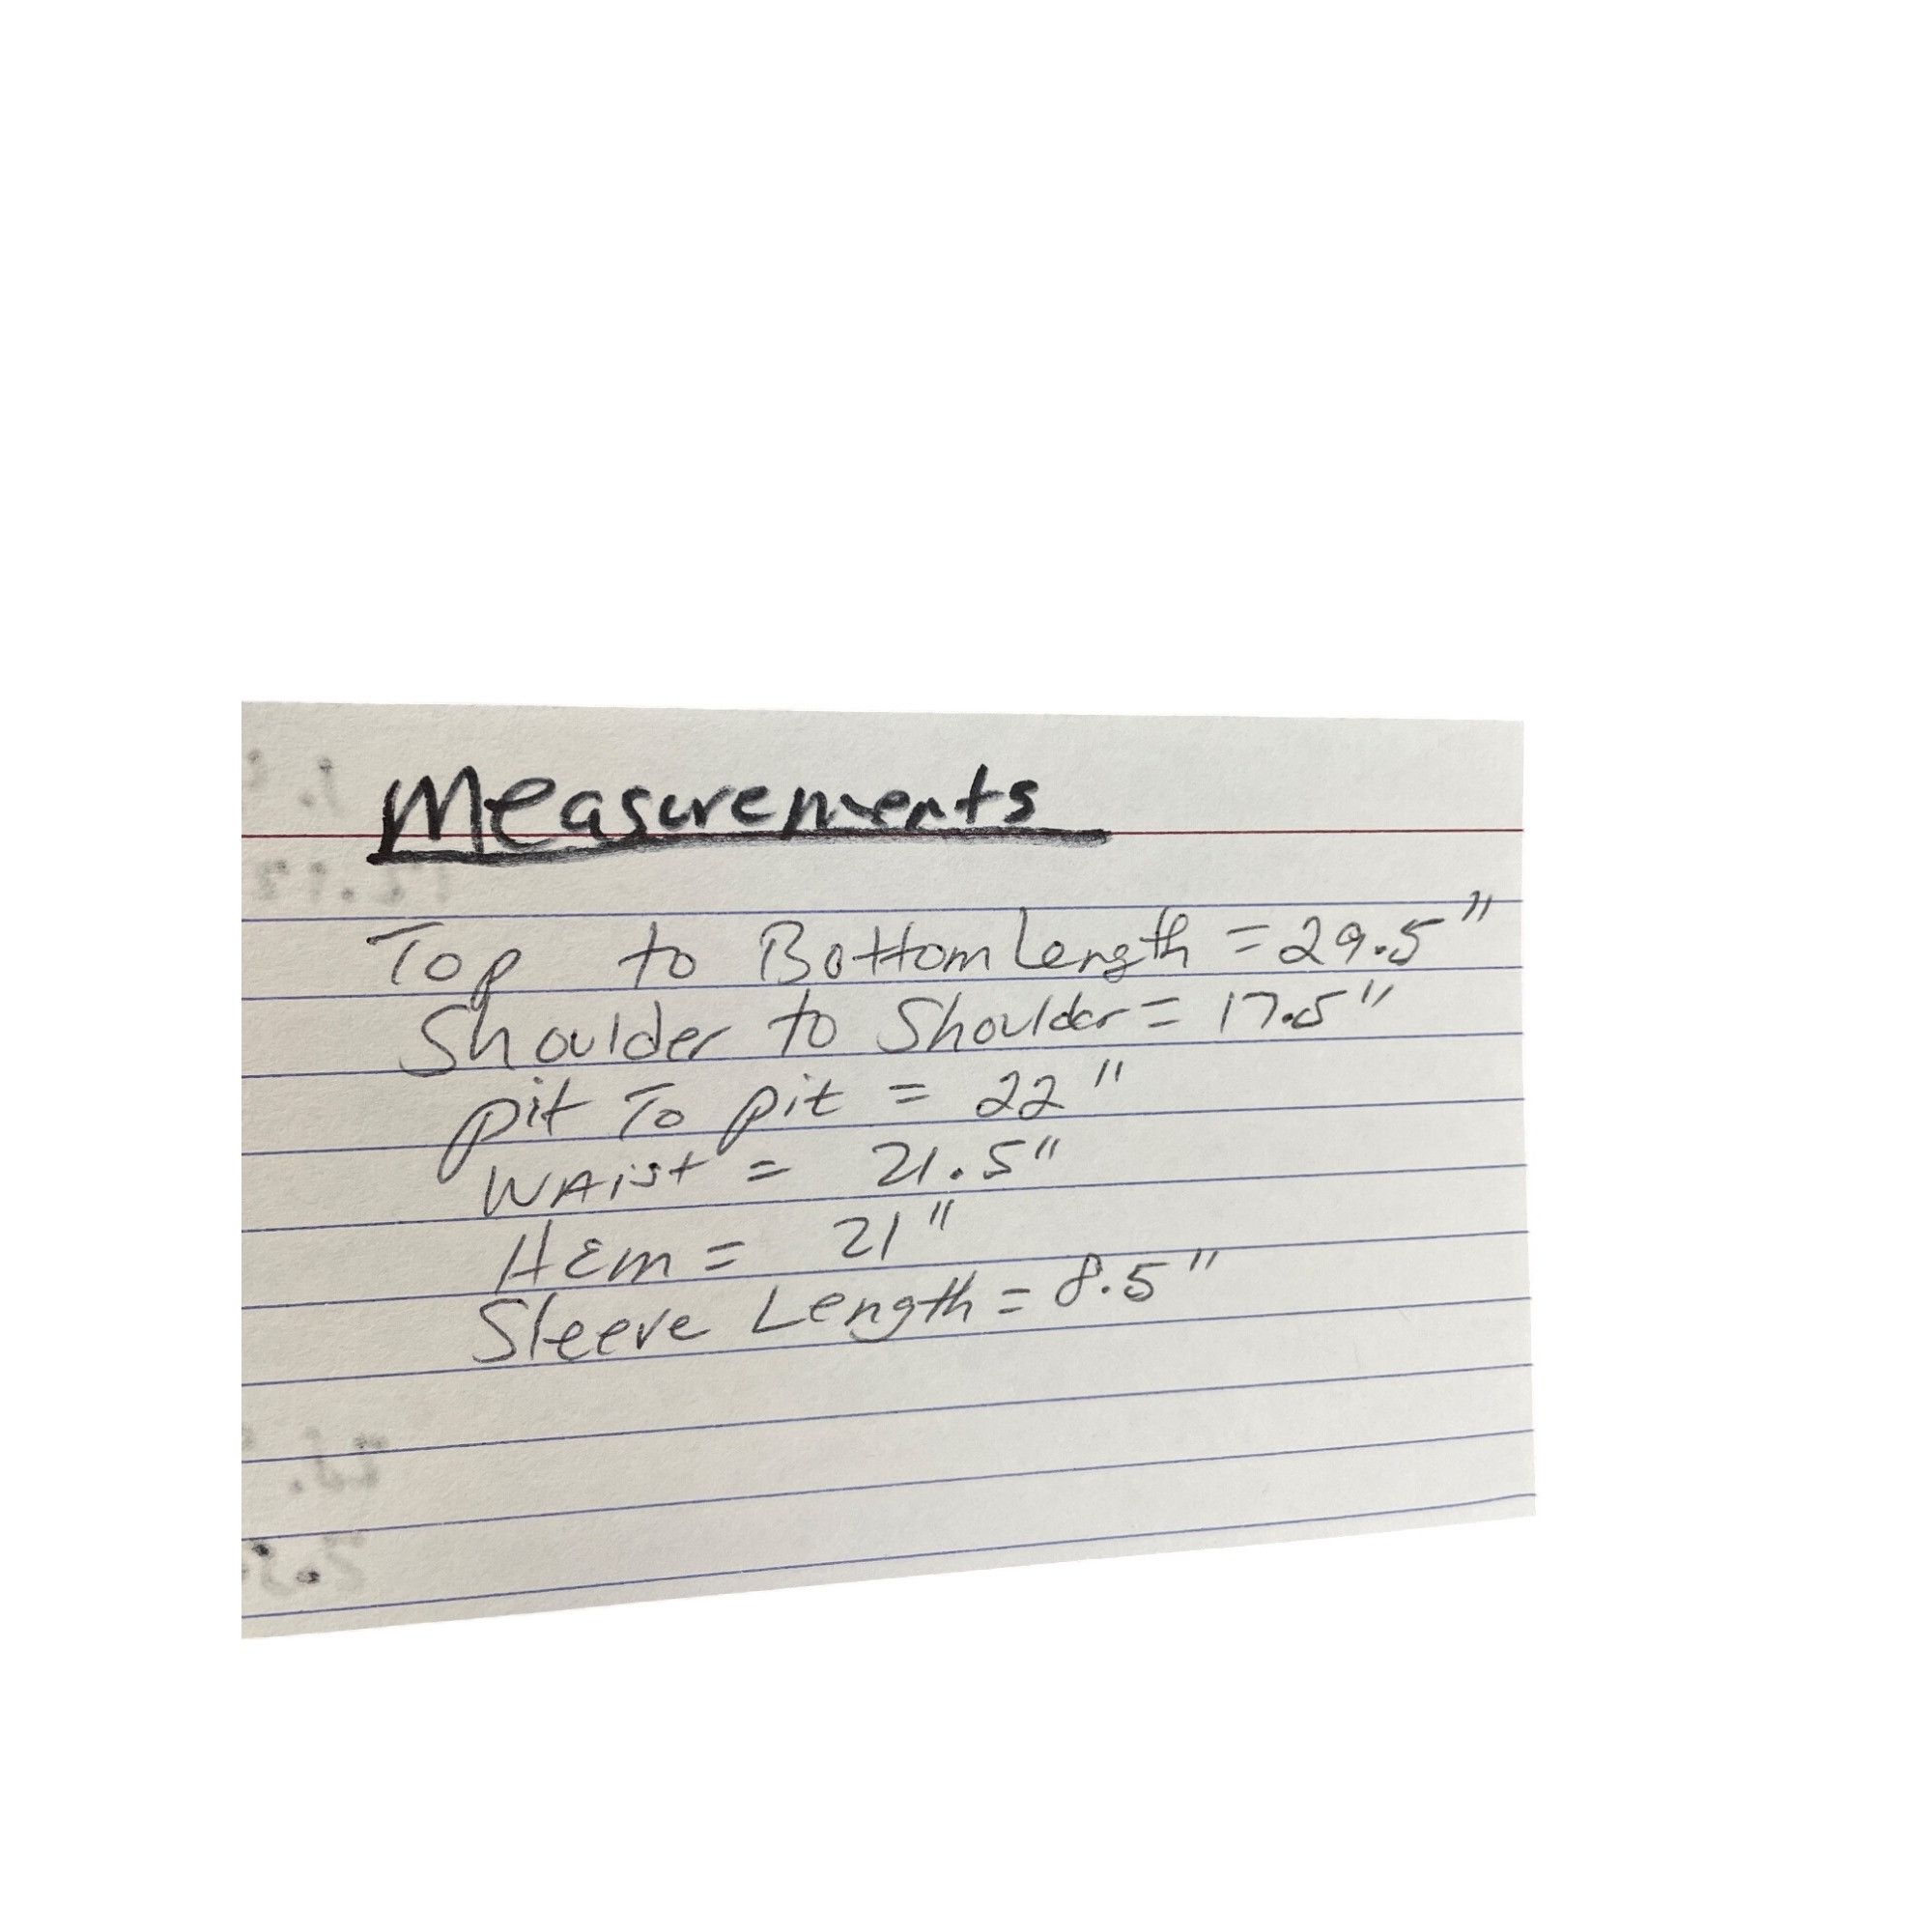 Measurements
Top to Bottom Length = 29.5"
Shoulder to Shoulder = 17.5"
pit To pit = 22"
WAist = 21.5"
HEm = 21"
Sleeve Length = 8.5"